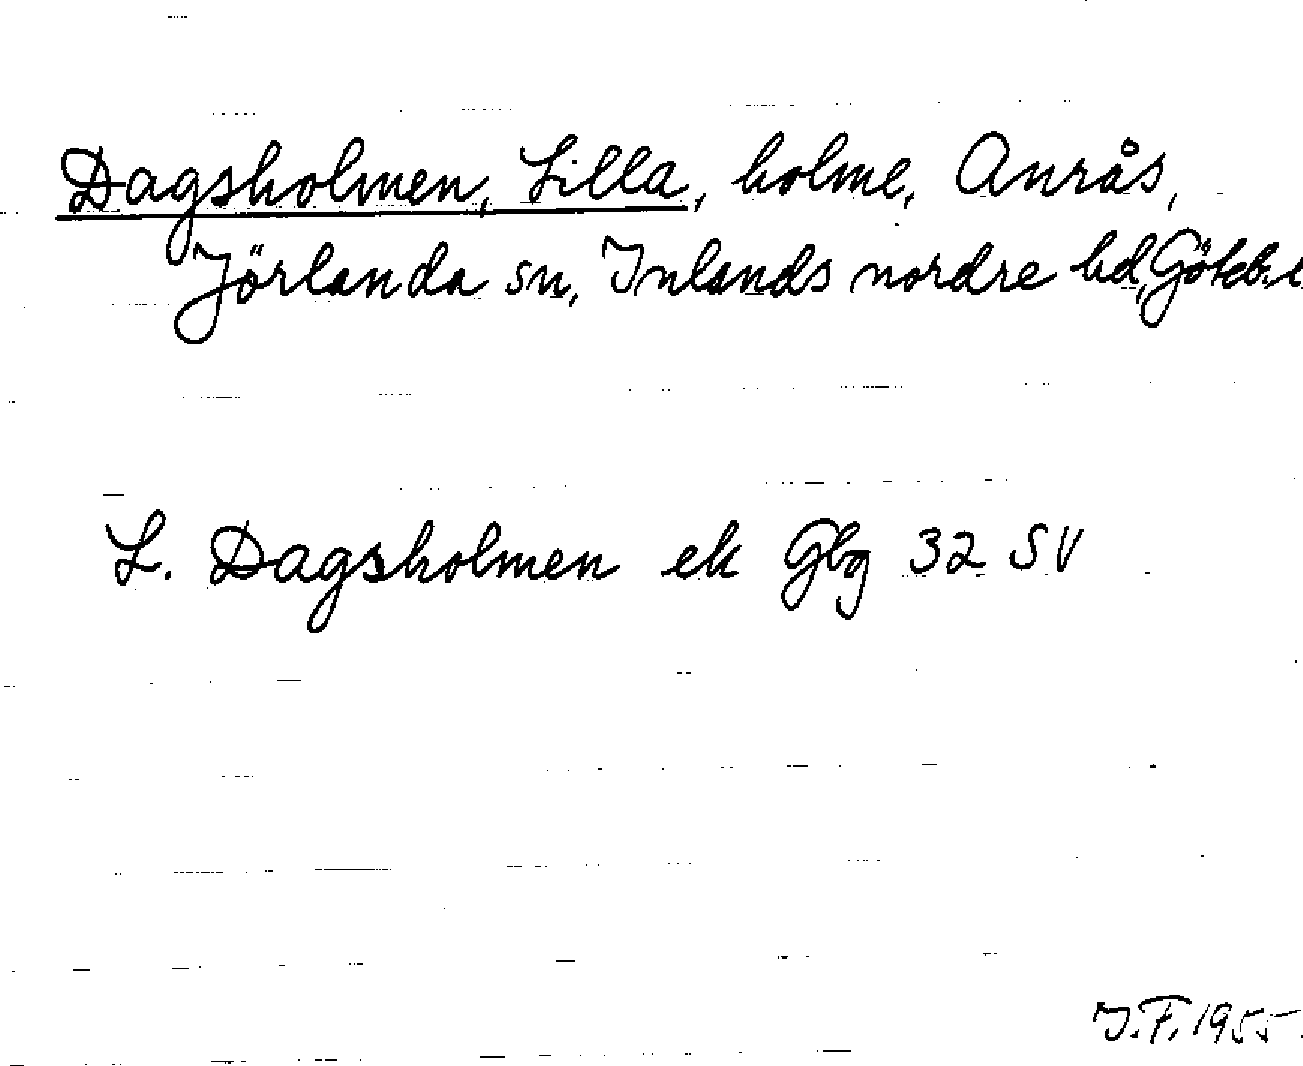 Dagsholmen, Lilla, holme, Anrås,
Jörlanda sn, Inlands nordre hd,
L. Dagsholmen ek Gbg 32 SV
J.F. 1955.